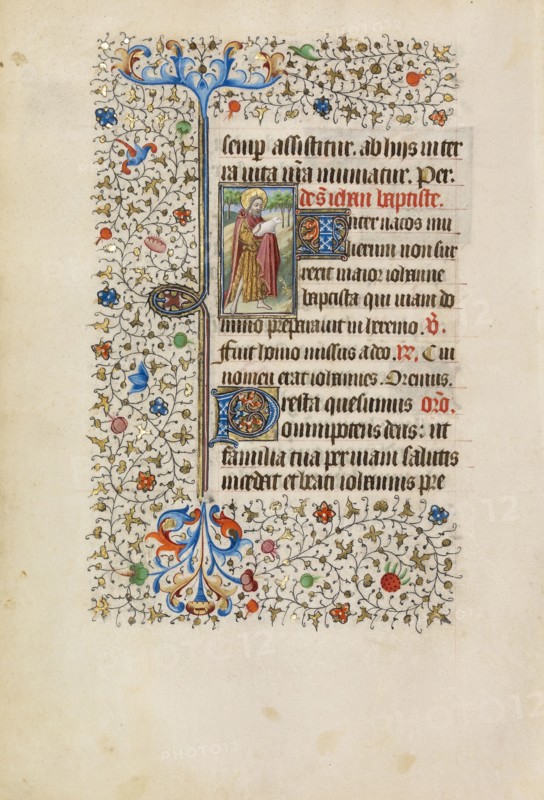 semp assistitur. ab hijs in ter
ra uita nr̄a muniatur. Per.
de s̄ iohan baptiste.
Inter natos mu
lierum non sur
rexit maior iohanne
baptista qui uiam do
mino preparauit in heremo. v̄.
fuit homo missus a deo. r̄. Cui
nomen erat iohannes. Oremus.
Presta quesumus or̄o.
omnipotens deus: ut
familia tua per uiam salutis
incedat et beati iohannis pre
PHOTO12
PHOTO12
PHOTO12